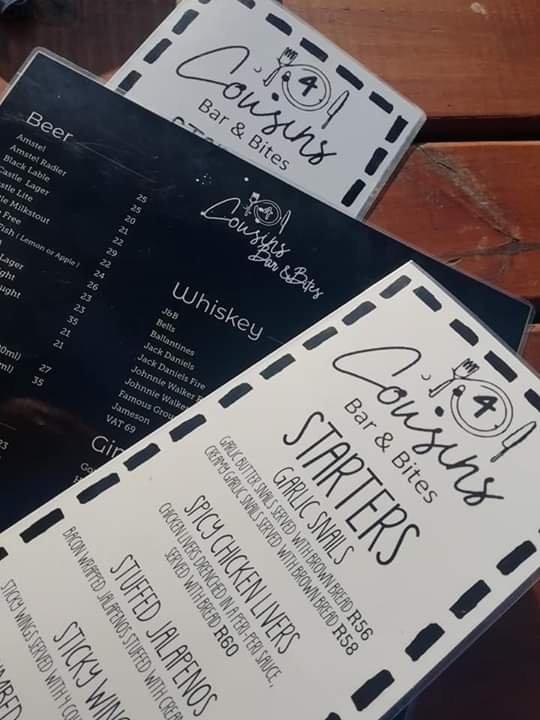 my
4
Cousins
Bar & Bites
Beer
Amstel
Amstel Radler
Black Lable
Castle Lager
stle Lite
le Milkstout
Free
ish ( Lemon or Apple )
Lager
ght
ught
0ml)
ml)
25
25
20
21
22
29
22
24
26
23
23
35
21
21
27
35
23
Cousins
Bar & Bites
Whiskey
J&B
Bells
Ballantines
Jack Daniels
Jack Daniels Fire
Johnnie Walker R
Johnnie Walke
Famous Grou
Jameson
VAT 69
Gin
Go
my
4
Cousins
Bar & Bites
STARTERS
GARLIC SNAILS
GARLIC BUTTER SNAILS SERVED WITH BROWN BREAD R56
CREAMY GARLIC SNAILS SERVED WITH BROWN BREAD R58
SPICY CHICKEN LIVERS
CHICKEN LIVERS DRENCHED IN A PERI-PERI SAUCE,
SERVED WITH BREAD R60
STUFFED JALAPENOS
BACON WRAPPED JALAPENOS STUFFED WITH CREA
STICKY WIN
STICKY WINGS SERVED WITH 4 CO
UMBED